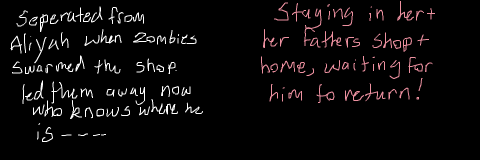 Seperated from
Aliyah when Zombies
swarmed the shop.
led them away now
who knows where he
is ----
Staying in her +
her Fathers shop +
home, waiting for
him to return!